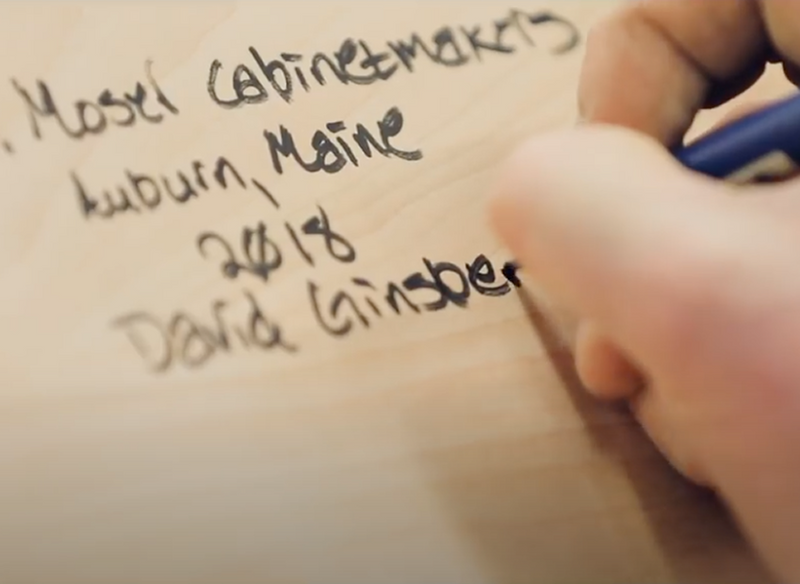 . Moser Cabinetmakers
Auburn, Maine
2018
David Ginsber